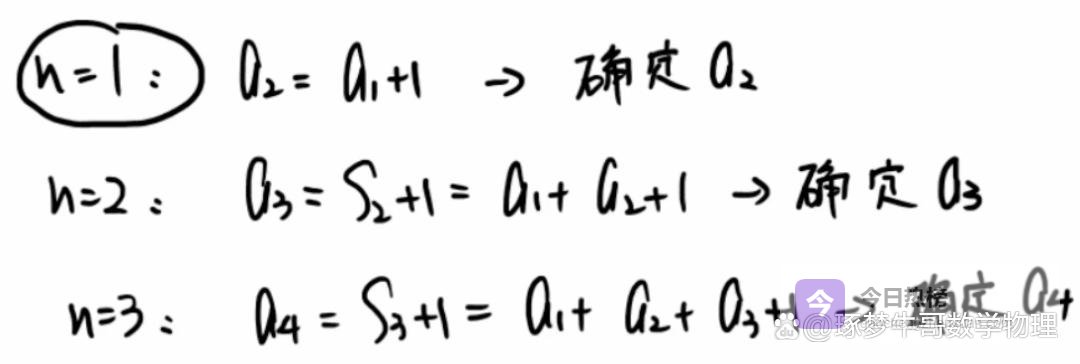 n=1： a₂ = a₁+1 → 确定 a₂
n=2： a₃ = S₂+1 = a₁+ a₂+1 → 确定 a₃
n=3： a₄ = S₃+1 = a₁+ a₂+ a₃+1 → 确定 a₄
今 今日热榜
@琢梦牛哥数学物理